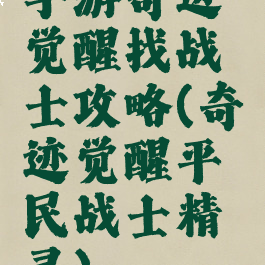 手游奇迹
觉醒找战
士攻略(奇
迹觉醒平
民战士精
灵)